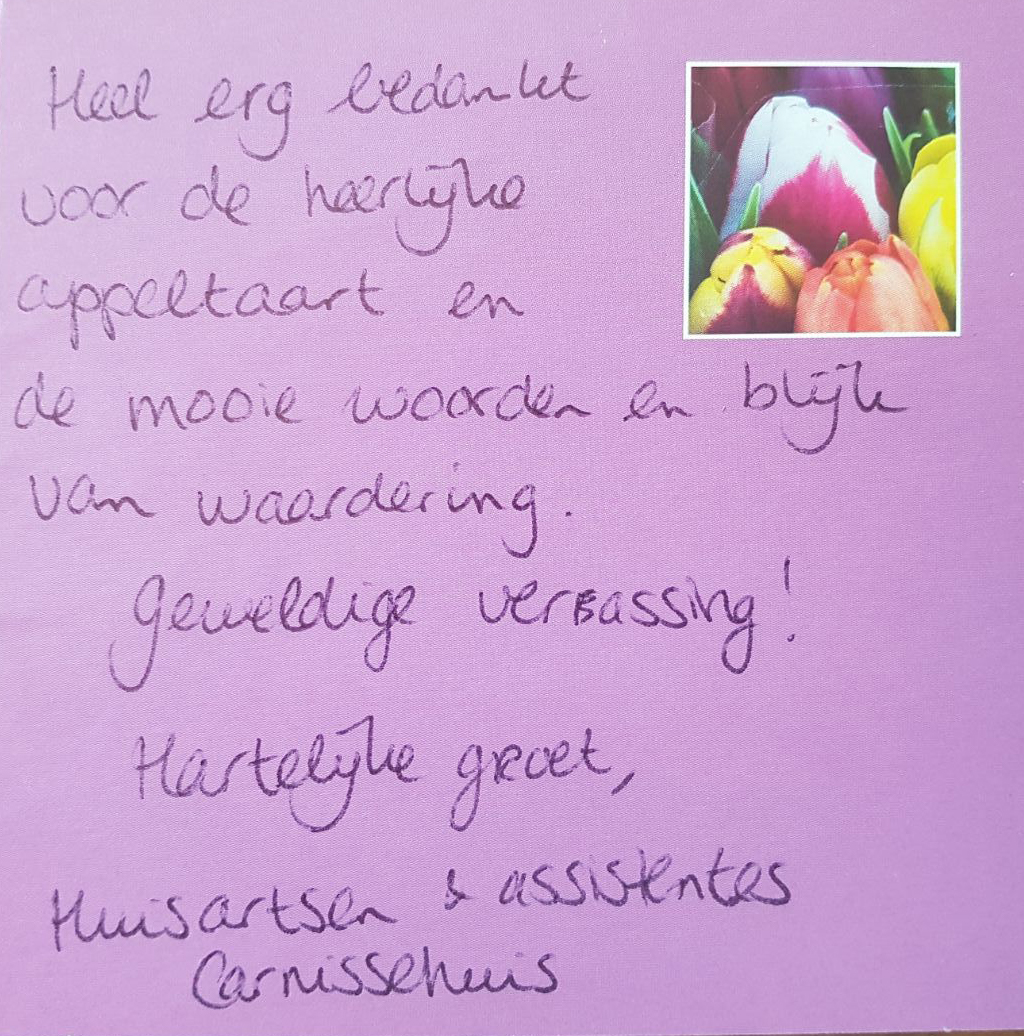 Heel erg bedankt
voor de heerlijke
appeltaart en
de mooie woorden en blijk
van waardering.
Geweldige verrassing!
Hartelijke groet,
Huisartsen & assistentes
Carnissehuis